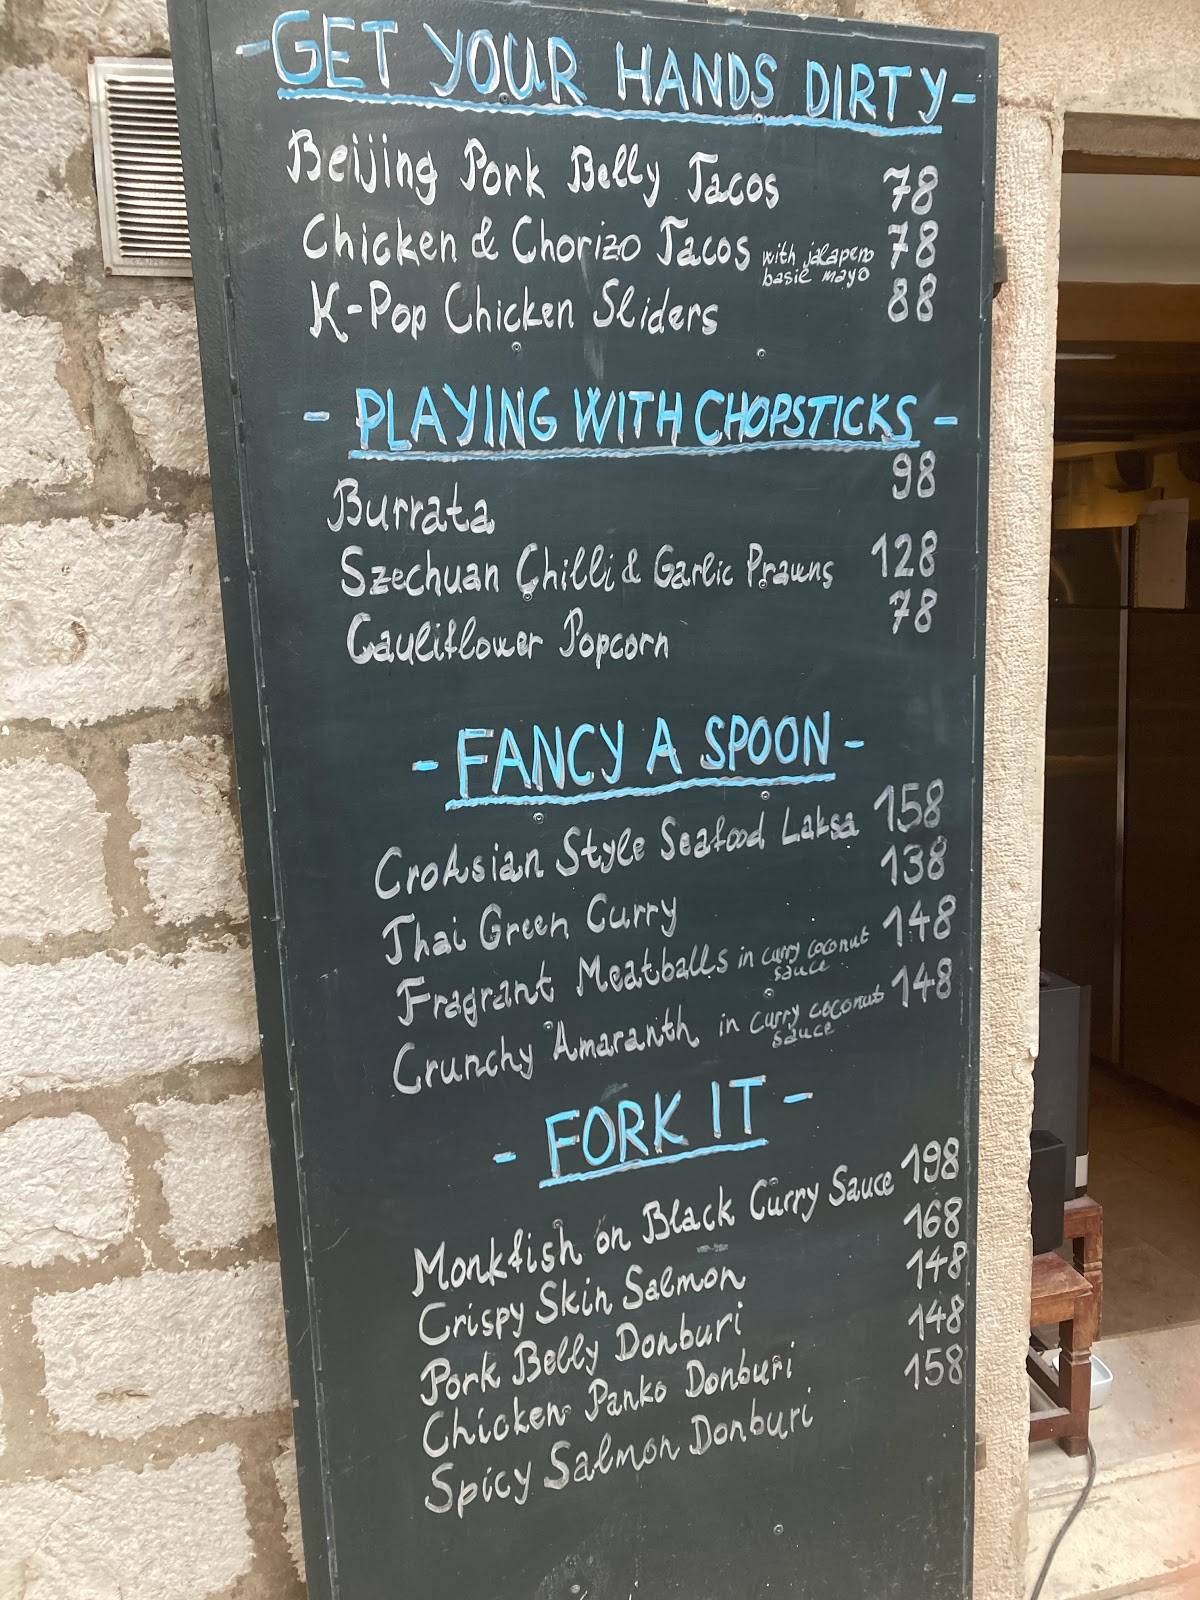 -GET YOUR HANDS DIRTY-
Beijing Pork Belly Tacos 78
Chicken & Chorizo Tacos with jalapeno 78
basil mayo
K-Pop Chicken Sliders 88
- PLAYING WITH CHOPSTICKS -
Burrata 98
Szechuan Chilli & Garlic Prawns 128
Cauliflower Popcorn 78
- FANCY A SPOON -
CroAsian Style Seafood Laksa 158
Thai Green Curry 138
Fragrant Meatballs in curry coconut 148
sauce
Crunchy Amaranth in curry coconut 148
sauce
- FORK IT -
Monkfish on Black Curry Sauce 198
Crispy Skin Salmon 168
Pork Belly Donburi 148
Chicken Panko Donburi 148
Spicy Salmon Donburi 158